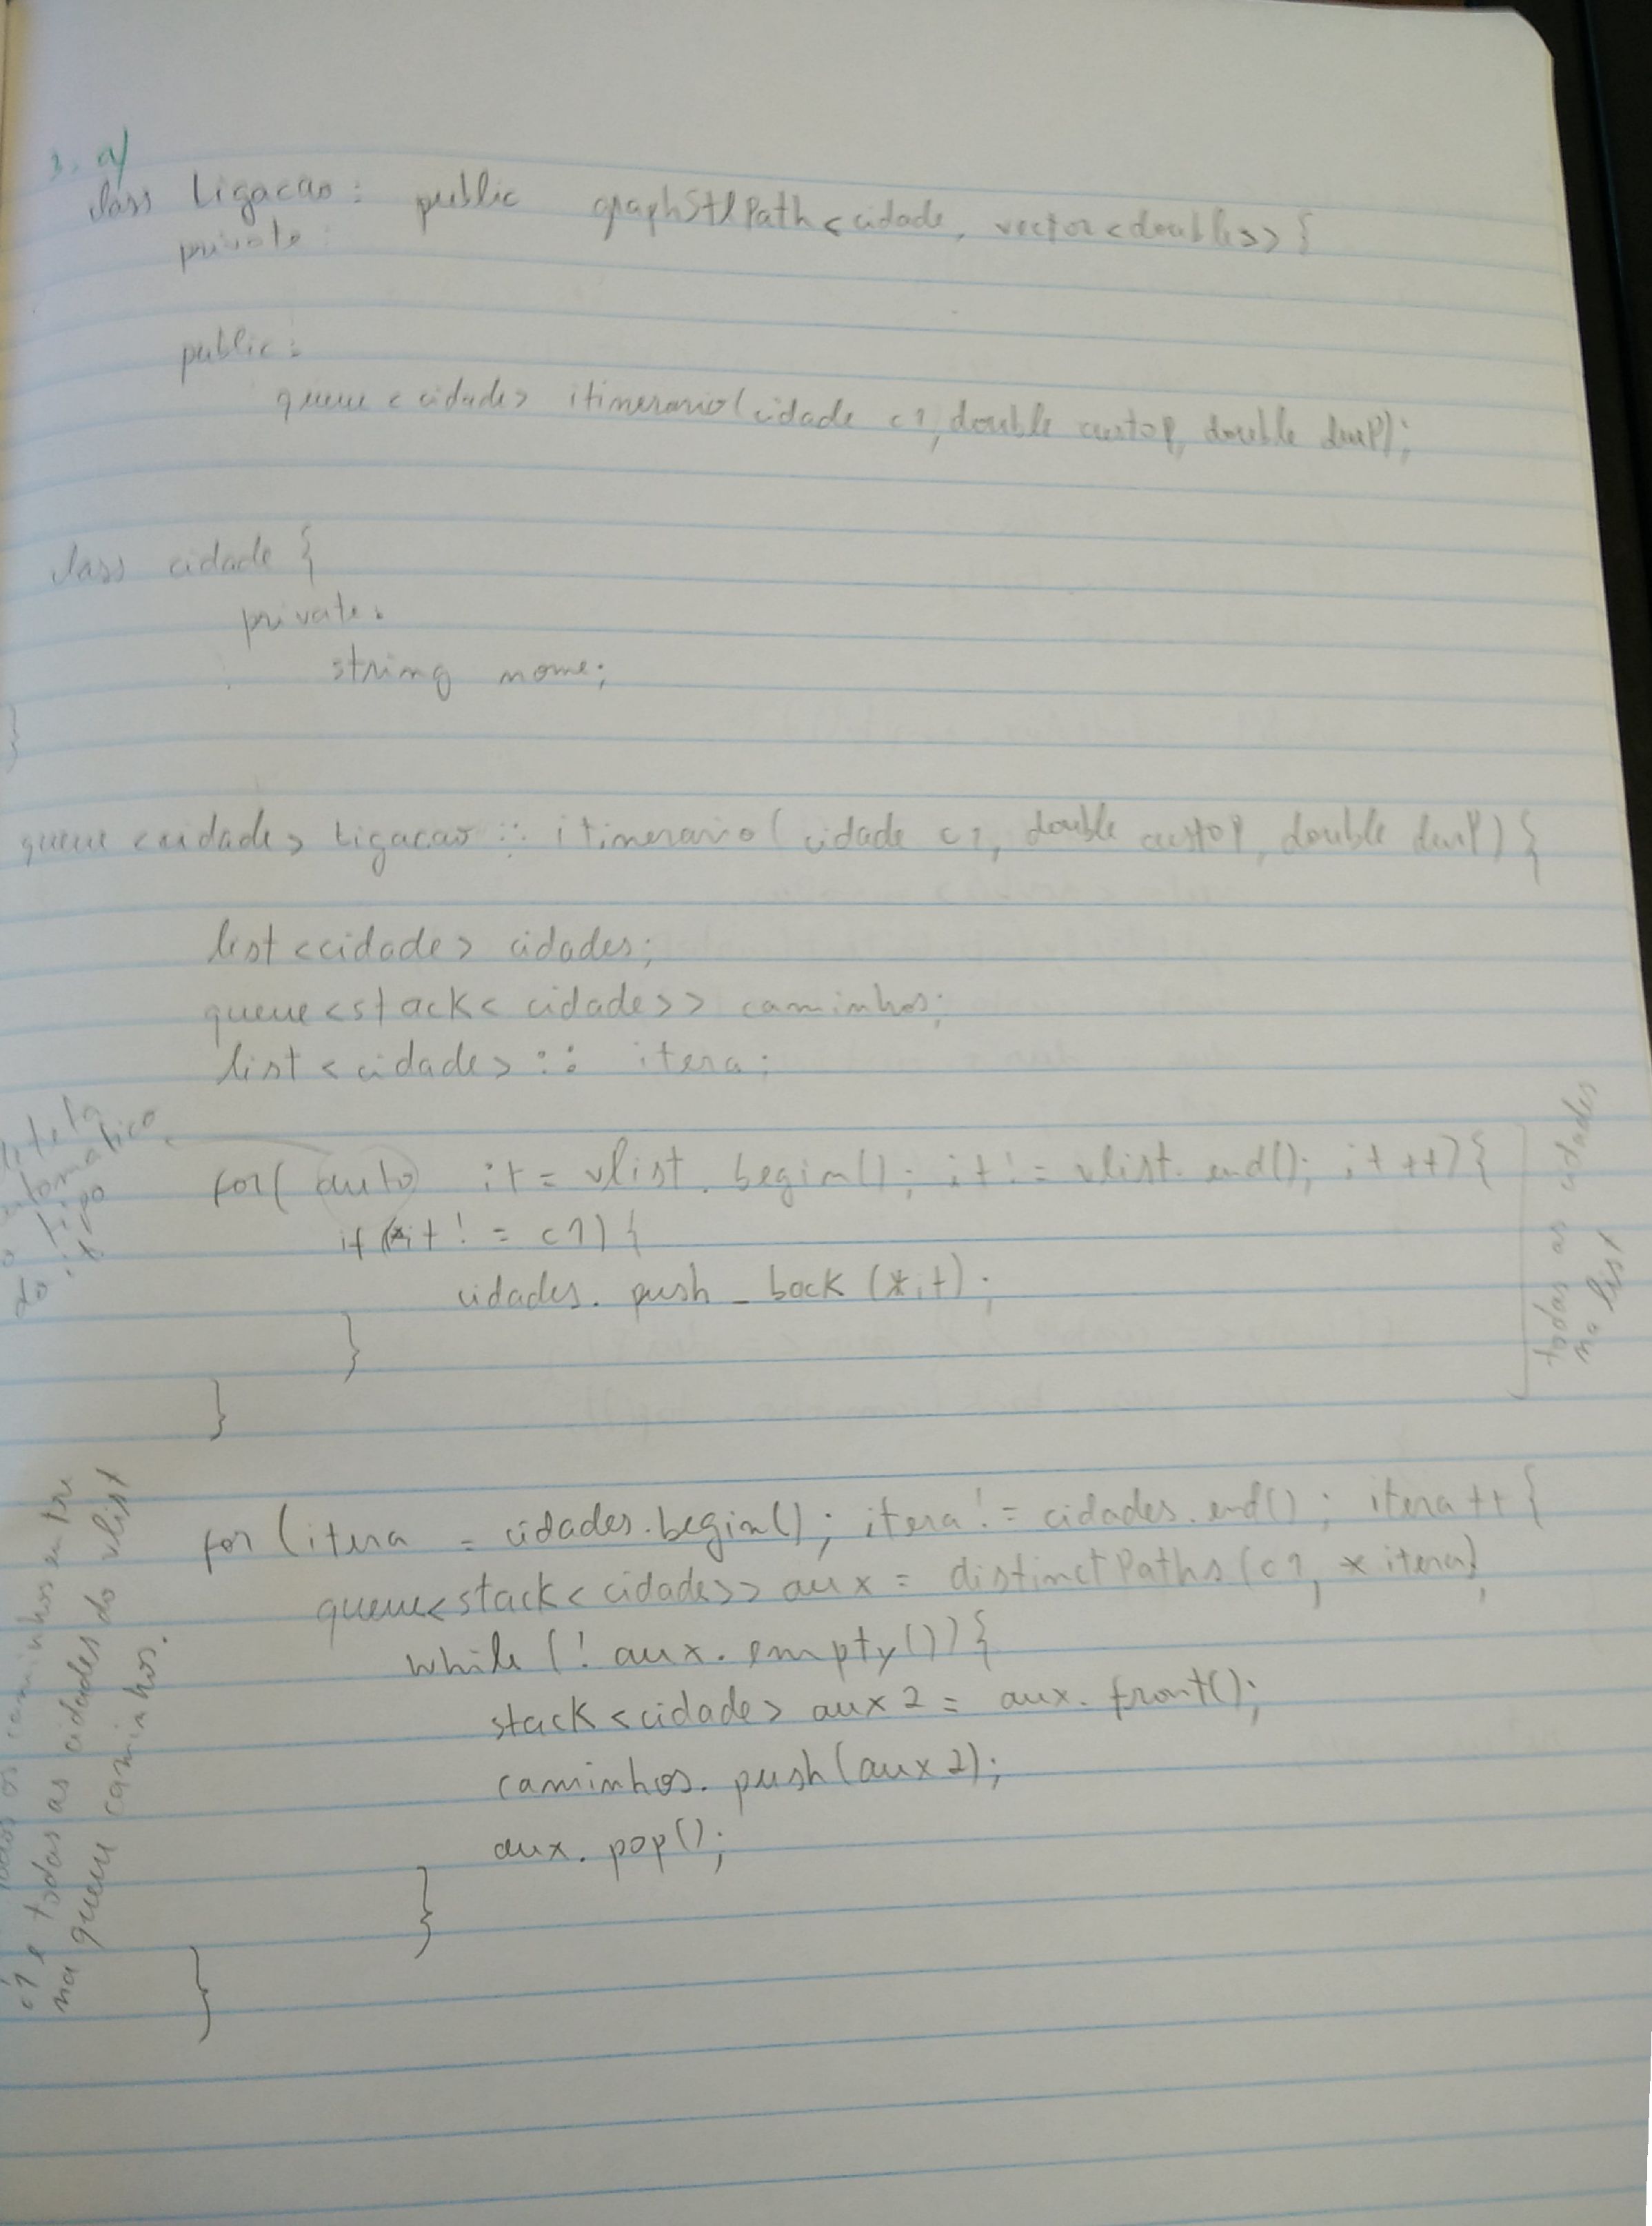 3. a)
class Ligacao : public graphStlPath < cidade, vector<double>> {
private:
public:
queue < cidade > itinerario ( cidade c1, double custoP, double durP);
class cidade {
private:
string nome;
}
queue <cidade> Ligacao :: itinerario ( cidade c1, double custoP, double durP) {
list <cidade> cidades;
queue <stack< cidade>> caminhos;
list < cidade> :: itera;
for( auto it = vlist. begin(); it != vlist. end(); it ++) {
if (*it != c1) {
cidades. push_back (*it);
}
}
todas as cidades
na list
do tipo
for (itera = cidades.begin(); itera != cidades.end(); itera ++ {
queue<stack< cidade>> aux = distinctPaths (c1, * itera)
while (! aux. empty()) {
stack <cidade> aux2 = aux. front();
caminhos. push (aux2);
aux. pop();
}
}
os caminhos entre
c1 e todas as cidades do vlist
na queue caminhos.